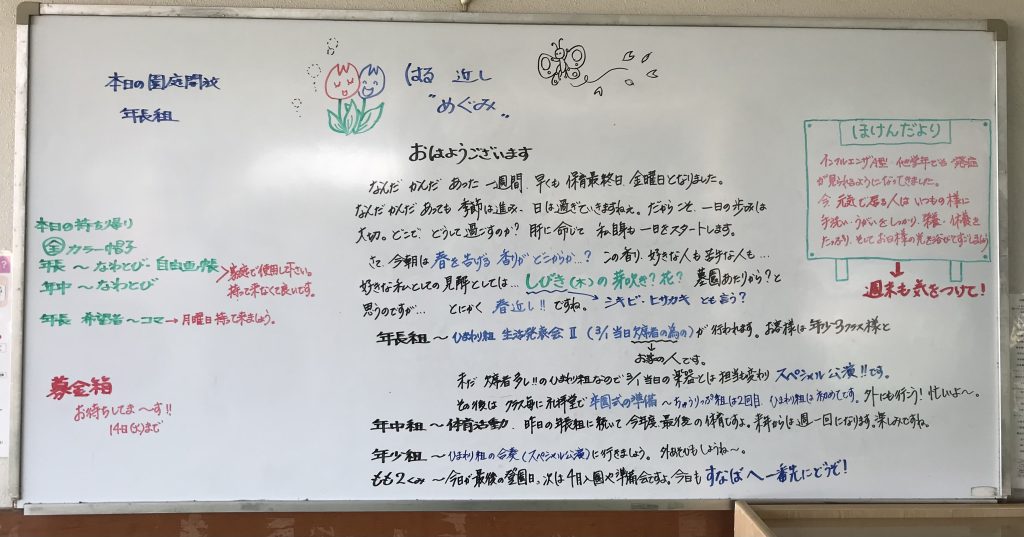 本日の園庭開放
年長組
はる 近し
"めぐみ"
おはようございます
なんだ かんだ あった 一週間、早くも 保育最終日、金曜日となりました。
なんだかんだ あっても 季節は進み、日は過ぎていきますねぇ。だからこそ、一日の歩みは
大切。どこで、どうして過ごすのか? 肝に命じて 私自身も一日をスタートします。
さて、今朝は 春を告げる 香りが どこからか…? この香り、好きな人も 苦手な人も…
好きな私としての見解としては… しびき(木)の芽吹き?花? 墓園あたりから?と
思うのですが… とにかく 春近し!! ですね。 シキビ・ヒサカキ とも言う?
年長組 ~ ひまわり組 生活発表会 Ⅱ (3/1 当日欠席者の為の)が 行われます。お客様は 年少3クラス様と
お家の人です。
未だ 欠席者多し!! のひまわり組なので 3/1 当日の楽器とは 担当も変わり スペシャル公演!!です。
その後は クラス毎に 礼拝堂で 卒園式の準備 ~ ちゅうりっぷ組は2回目、ひまわり組は初めてです。外にも行こう! 忙しいよ~。
年中組 ~ 体育活動、昨日の年長組に続いて 今年度、最後の保育ですよ。来年からは週一回になります。楽しみですね。
年少組 ~ ひまわり組の合奏(スペシャル公演)に行きましょう。外あそびもしようね~。
もも2くみ ~ 今日が最後の登園日、次は 4月入園や準備会ですよ。今日も すなばへ 一番先にどうぞ!
本日の持ち帰り
全 カラー帽子
年長 ~ なわとび・自由画帳
年中 ~ なわとび
家庭で使用して下さい。
持って来なくて良いです。
年長 希望者 ~ コマ → 月曜日持って来ましょう。
募金箱
お待ちしてま~す!!
14日(火)まで
ほけんだより
インフルエンザA型 他学年でも 発症
が見られるようになってきました。
今 元気で居る人は いつもの様に
手洗い・うがいをしっかり、栄養・休養を
たっぷり、そしてお日様の光を浴びてすごしましょう
週末も気をつけて!